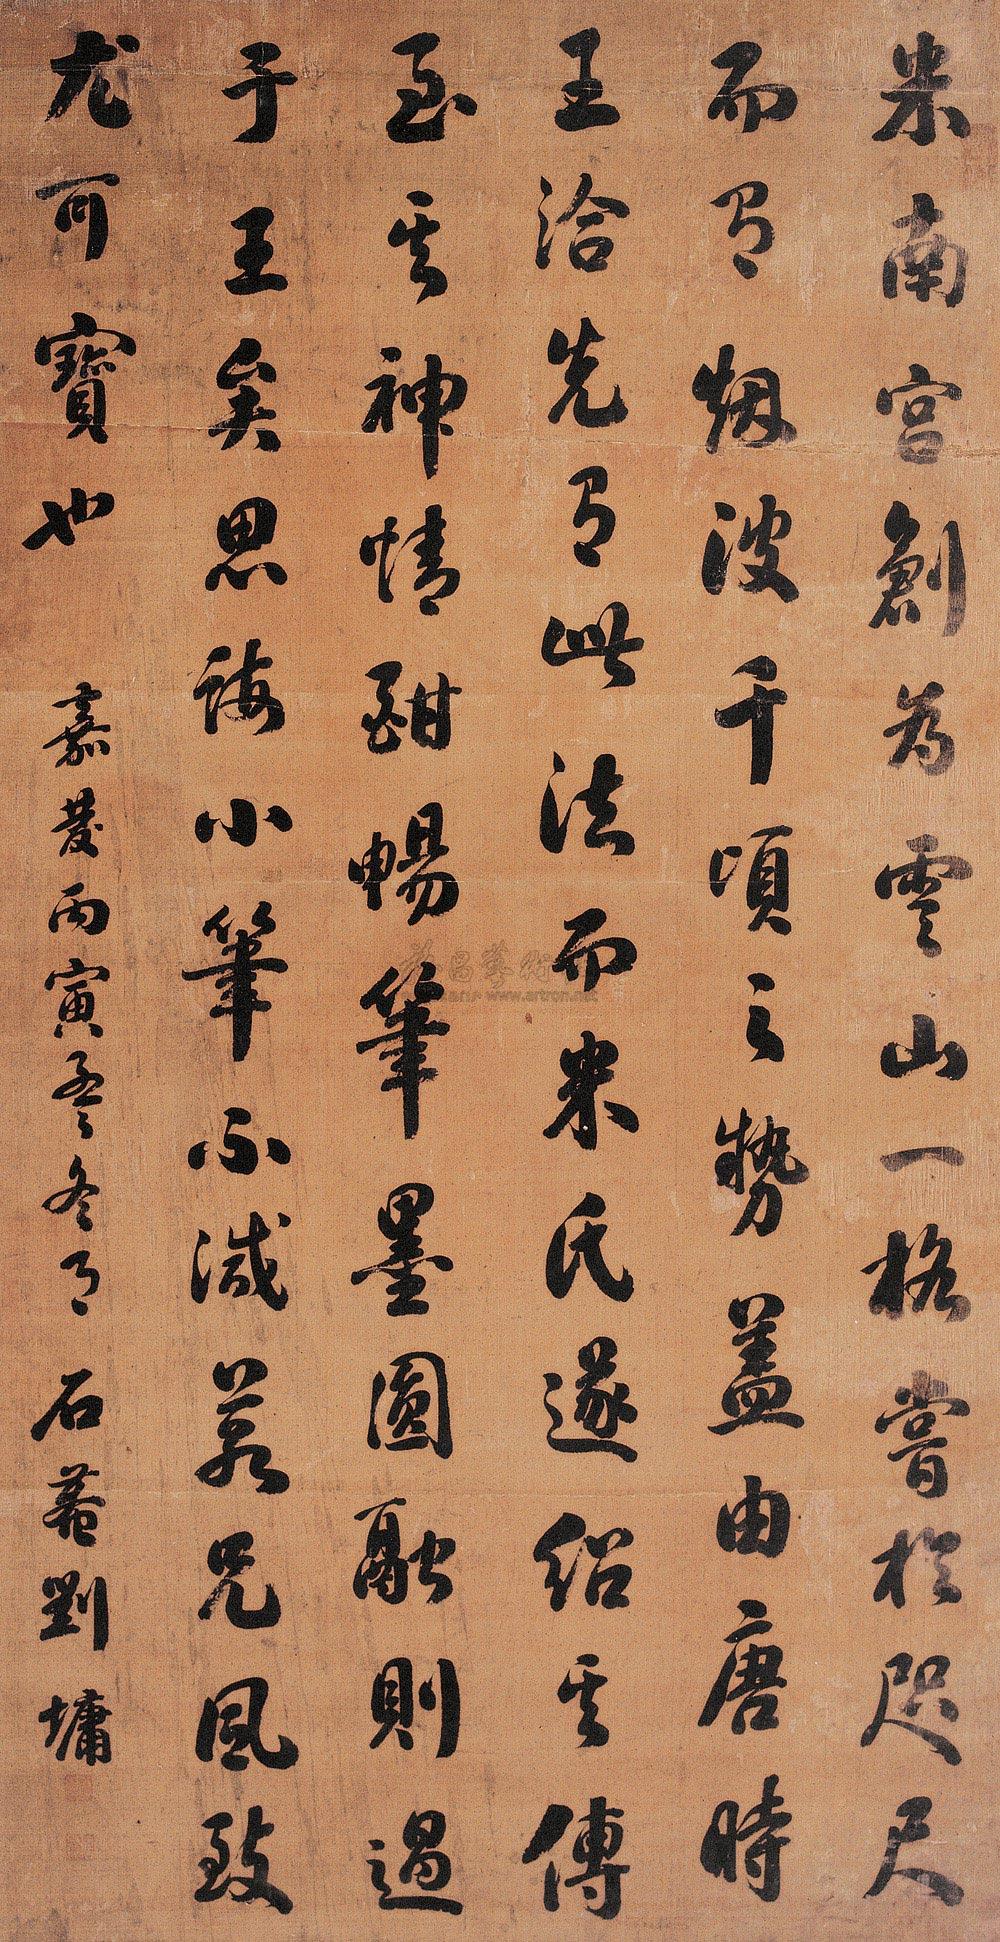 米南宫創為雲山一格嘗於咫尺
而有烟波千頃之勢蓋由唐時
王洽先有此法而米氏遂紹其傳
至其神情酣暢筆墨圓融則過
于王矣思誨小筆不减若兄風致
尤可寶也 嘉慶丙寅孟冬月 石菴劉墉
www.artron.net